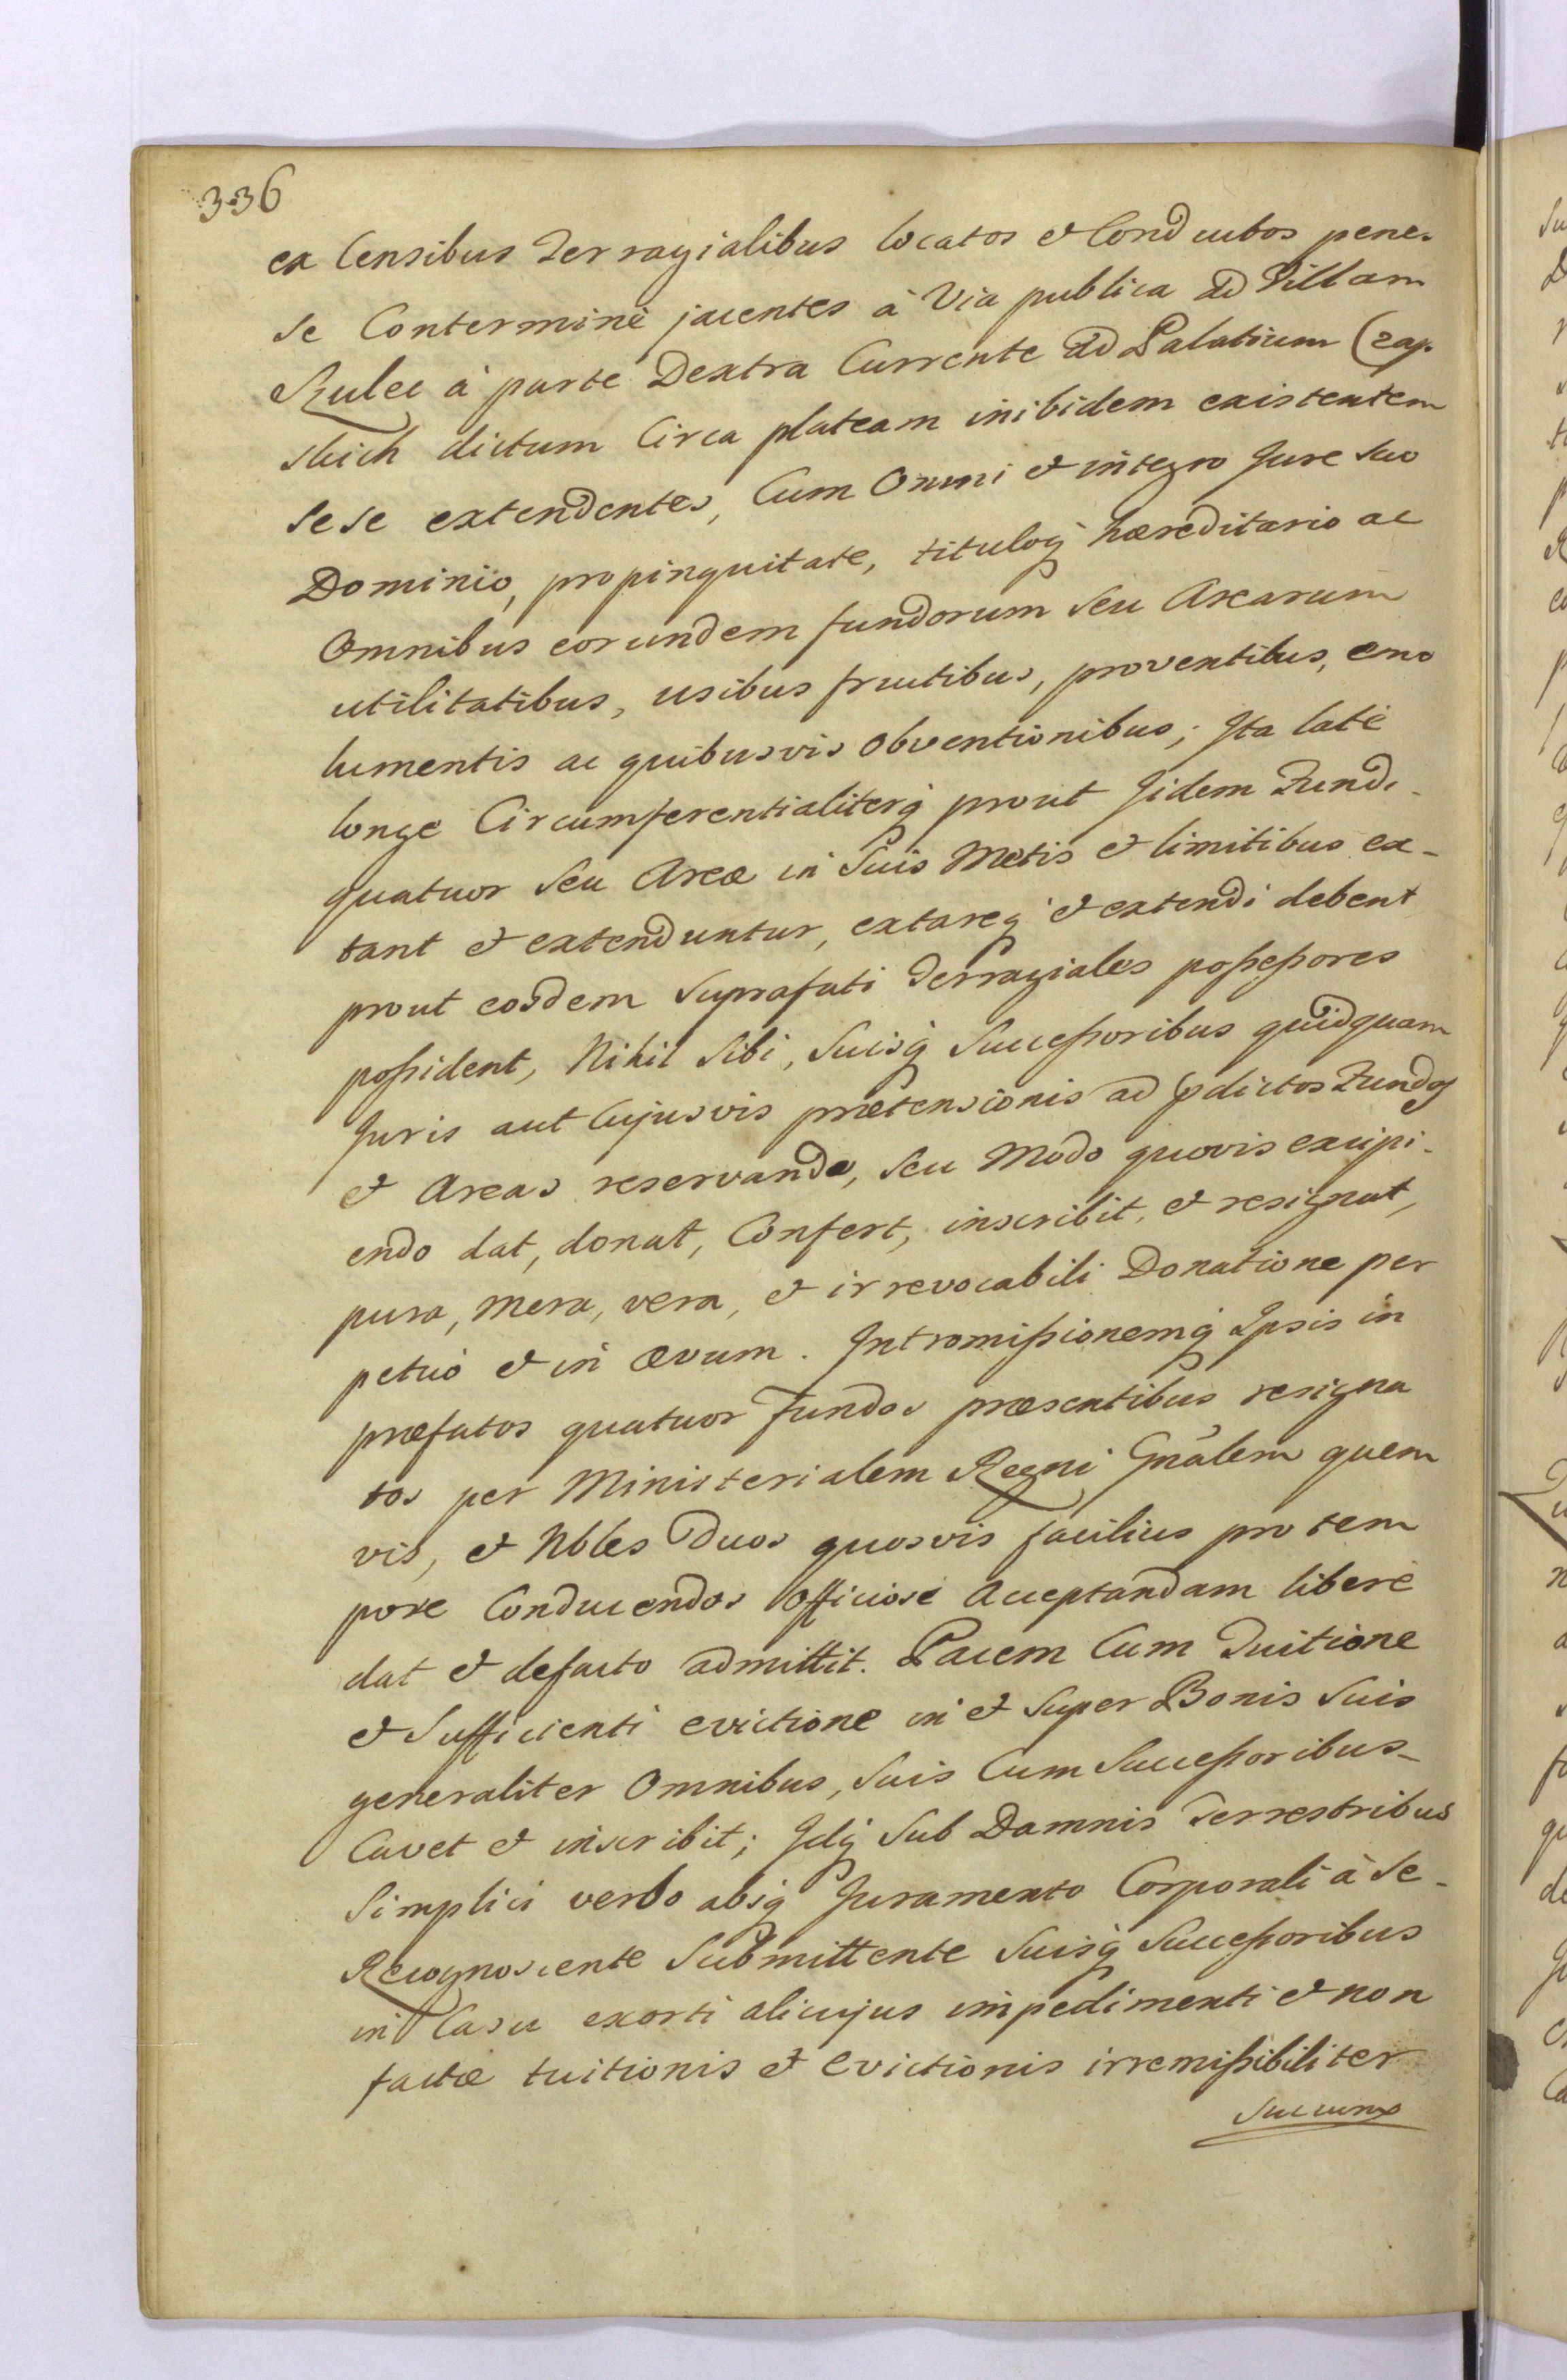 336
ex Censibus Terragialibus locatos et Conductos pene.
se Contermine jacentes à Via publica ad Villam
Rulec à parte Dextra Currente ad Palatium Czap.
skich dictum Circa plateam inibidem existentem
sese extendentes, Cum Omni et integro Jure suo
Dominio, propinquitate, tituloq hæreditario ac
Omnibus eorundem fundorum seu Arearum
utilitatibus, usibus fructibus, proventibus, emo
lumentis ac quibusvis obventionibus; Ita latè
longe Circumferentialiterq prout Iidem Fundi
quatuor seu Areæ in suis Metis et limitibus ex-
tant et extenduntur, extareq et extendi debent
prout eosdem Suprafati Terragiales possessores
possident, Nihil sibi, suisq successoribus quidquam
Juris aut Cujusvis prætensionis ad pdictos Fundos
et Areas reservando, seu Modo quovis excipi-
endo dat, donat, Confert, inscribit, et resignat,
pura, mera, vera, et irrevocabili Donatione per
petuò et in ævum. Intromissionemq Ipsis in
præfatos quatuor Fundos præsentibus resigna
tos per Ministerialem Regni Gnâlem quem
vis, et Nbles Duos quosvis facilius pro tem
pore Conducendos Officiosè acceptandam liberè
dat et defacto admittit. Pacem Cum Tuitione
et Sufficienti evictione in et super Bonis suis
generaliter Omnibus, suis Cum Successoribus
Cavet et inscribit; Idq Sub Damnis Terrestribus
Simplici verbo absq Juramento Corporali à se
Recognoscente Submittente Suisq Successoribus
in Casu exorti alicujus impedimenti et non
factæ tuitionis et Evictionis irremissibiliter